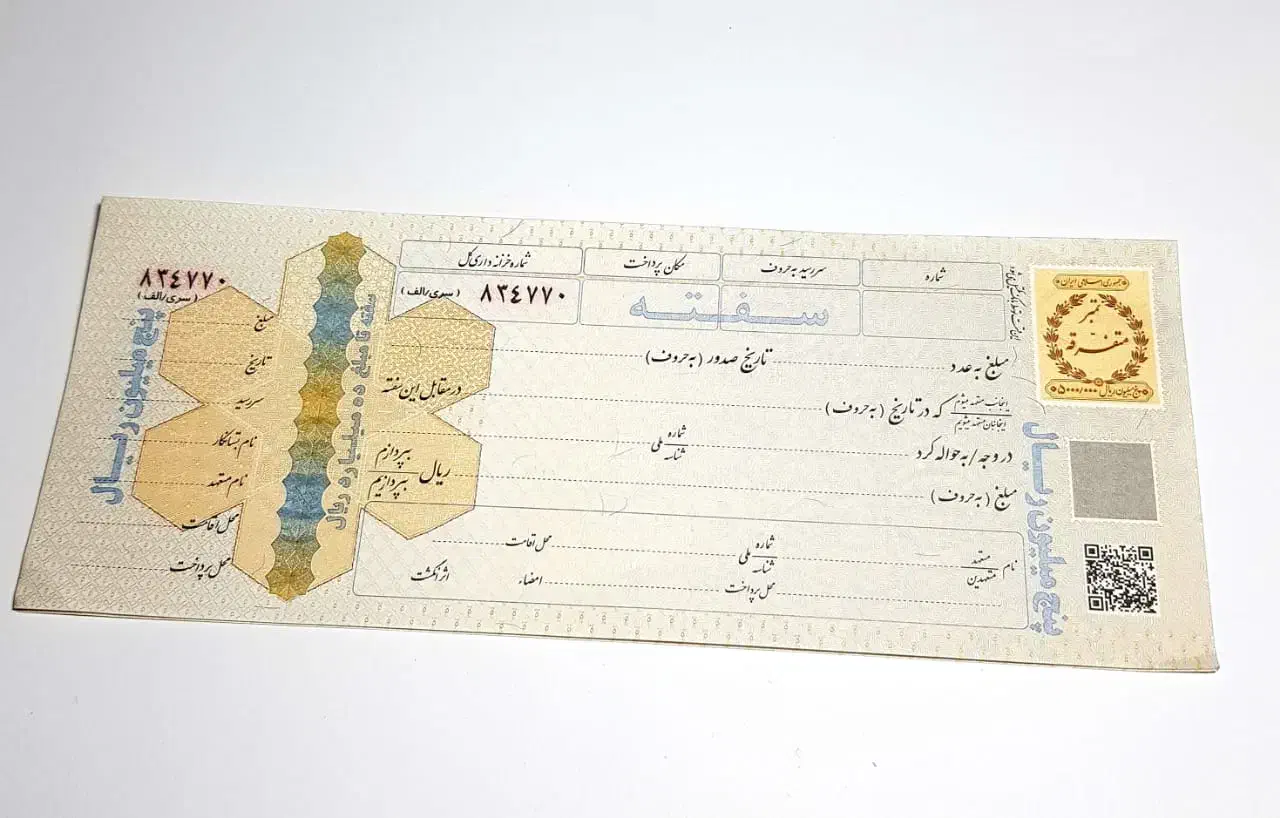 شماره
سررسید به حروف
مکان پرداخت
شماره خزانه داری کل
سفته
۸۳٤۷۷۰
(سری/الف)
مبلغ به عدد
تاریخ صدور (به حروف)
اینجانب متعهد میشوم
اینجانبان متعهد میشویم
که در تاریخ (به حروف)
در مقابل این سفته
در وجه/به حواله کرد
شماره
شناسه
ملی
مبلغ (به حروف)
ریال
بپردازم
بپردازیم
نام
متعهد
متعهدین
شماره
شناسه
ملی
محل اقامت
محل پرداخت
امضاء
اثر انگشت
جمهوری اسلامی ایران
تمبر
متفرقه
پنج میلیون ریال ۵۰۰۰/۰۰۰
پنج میلیون ریال
سفته تا مبلغ ده میلیارد ریال
۸۳٤۷۷۰
(سری/الف)
مبلغ
تاریخ
سررسید
نام بستانکار
نام متعهد
محل اقامت
محل پرداخت
پنج میلیون ریال